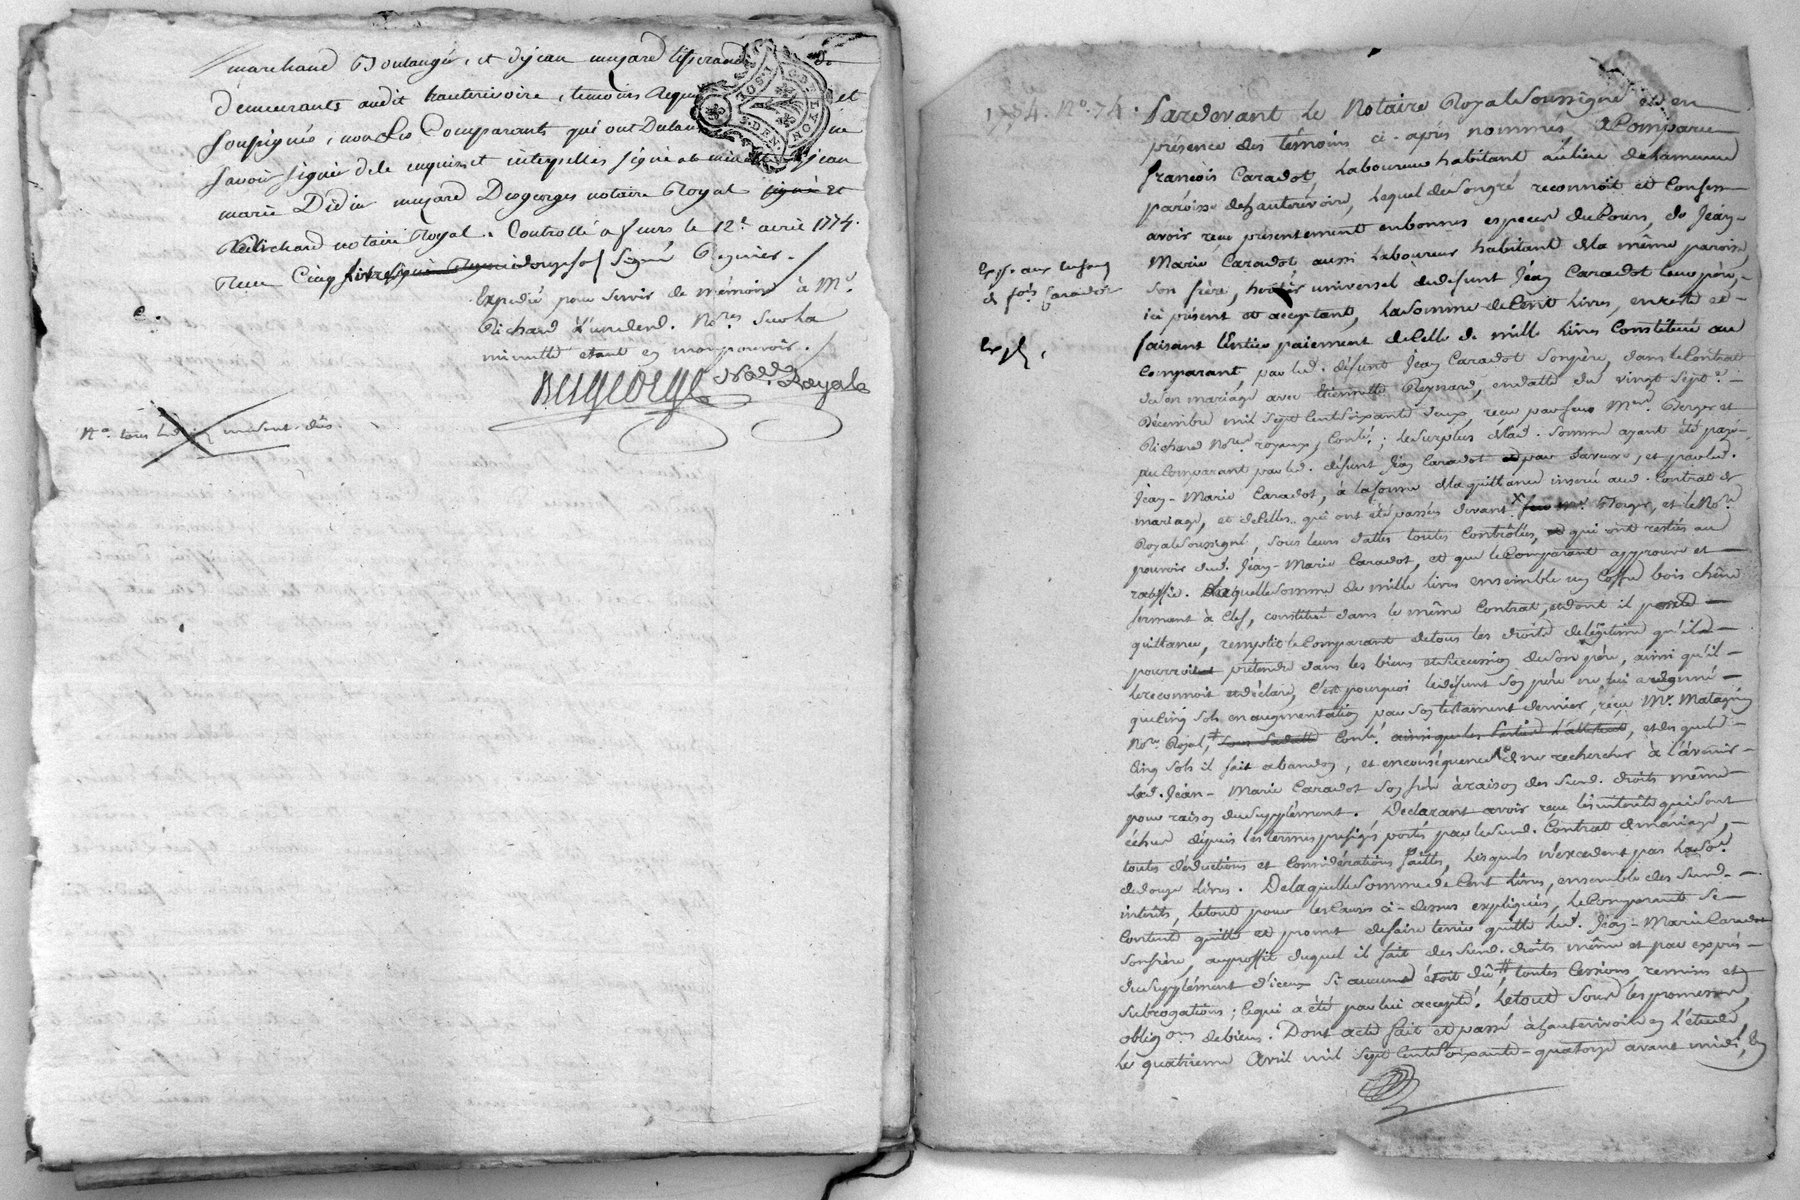 marchand Boulanger, et djean mujard
demeurants audit hauterivoire, temoins requis et
soussignés, non Les Comparants qui ont Declaré ne
savoir signer de ce enquis et interpellés signé a la minutte jean
marie Didier mujard Desgeorges notaire Royal signé et
Richard notaire Royal. Controllé a feurs le 12e. avril 1774.
Reçu Cinq livres douze sols Signé Regnier.
Expedié pour servir de mémoire à Mr.
Richard No.res Sur La
minutte etant en mon pouvoir.
Desgeorge No.re Royale
e.
Na. tous
LYON
GEN
1774. No. 74.
Pardevant le Notaire Royal Soussigné et en
présence des témoins ci-après nommés, a Comparu
françois Caradot Laboureur habitant au lieu de
paroisse de hauterivoire, lequel de son gré reconnoît et Confesse
avoir reçu présentement en bonnes especes du Cours, de Jéan-
Marie Caradot aussi Laboureur habitant de la même paroisse,
son frère, héritier universel de défunt Jéan Caradot leur père,
ici présent et acceptant, la somme de Cent livres, en reste et
faisant l'entier paiement de Celle de mille livres Constituée au
Comparant par led. défunt Jéan Caradot son père, dans le Contrat
de son mariage avec Reynard, en datte du vingt sept
Décembre mil sept Cent soixante deux, reçu par feus Mes. Berger et
Richard No.res royaux, Conlé.; le surplus de lad. somme ayant été payé
au Comparant par led. défunt Jéan Caradot et par led.
Jéan-Marie Caradot, à la forme de la quittance inserée aud. Contrat de
mariage, et de Celles qui ont été passés devant feu Me. Berger, et le No.re
Royal Soussigné, sous leurs dattes toutes Contrôlées, et qui ont restées au
pouvoir dud. Jéan-Marie Caradot, et que le Comparant approuve et
ratiffie. Laquelle somme de mille livres ensemble un Coffre bois chêne
fermant à Clef, constitué dans le même Contrat, et dont il
quittance, remplit le Comparant de tous les droits de légitime qu'il a
pourroit prétendre dans les biens et succession de son père, ainsi qu'il
le reconnoit et déclare, C'est pourquoi le défunt son père ne lui a légué
que Cinq sols en augmentation par son testament dernier, reçu Me. Matagrin
No.re Royal, sous sa datte Conlé. et desquels
Cinq sols il fait abandon, et en conséquence de ne rechercher à l'avenir
led. Jéan-Marie Caradot son frère à raison des susd. droits même
pour raison du supplément. Déclarant avoir reçu les intérêts qui sont
échus depuis les termes préfigés portés par le susd. Contrat de mariage,
toutes déductions et Considérations faittes, lesquels n'excedent pas la So.e
de douze livres. De laquelle somme de Cent livres, ensemble des susd.
intérêts, le tout pour les Causes ci-dessus expliquées, le Comparant se
Contente quitte et promet de faire tenir quitte led. Jéan-Marie Caradot
son frère, au proffit duquel il fait des susd. droits même et par exprès
du supplément d'iceux si aucun étoit dû, toutes Cessions, remises et
subrogations; Ce qui a été par lui accepté. Le tout sous les promesses,
oblig.ons de biens. Dont acte fait et passé à hauterivoire en l'étude
le quatrieme Avril mil sept Cent soixante-quatorze avant midi, En
Exp.e aux
de fois. Caradot